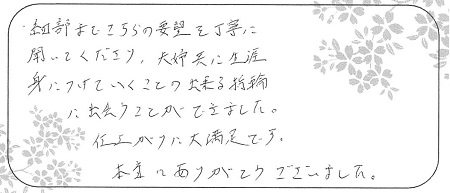 細部までこちらの要望を丁寧に
聞いてくださり、夫婦共に生涯
身につけていくことの出来る指輪
に出会うことができました。
仕上がりに大満足です。
本当にありがとうございました。